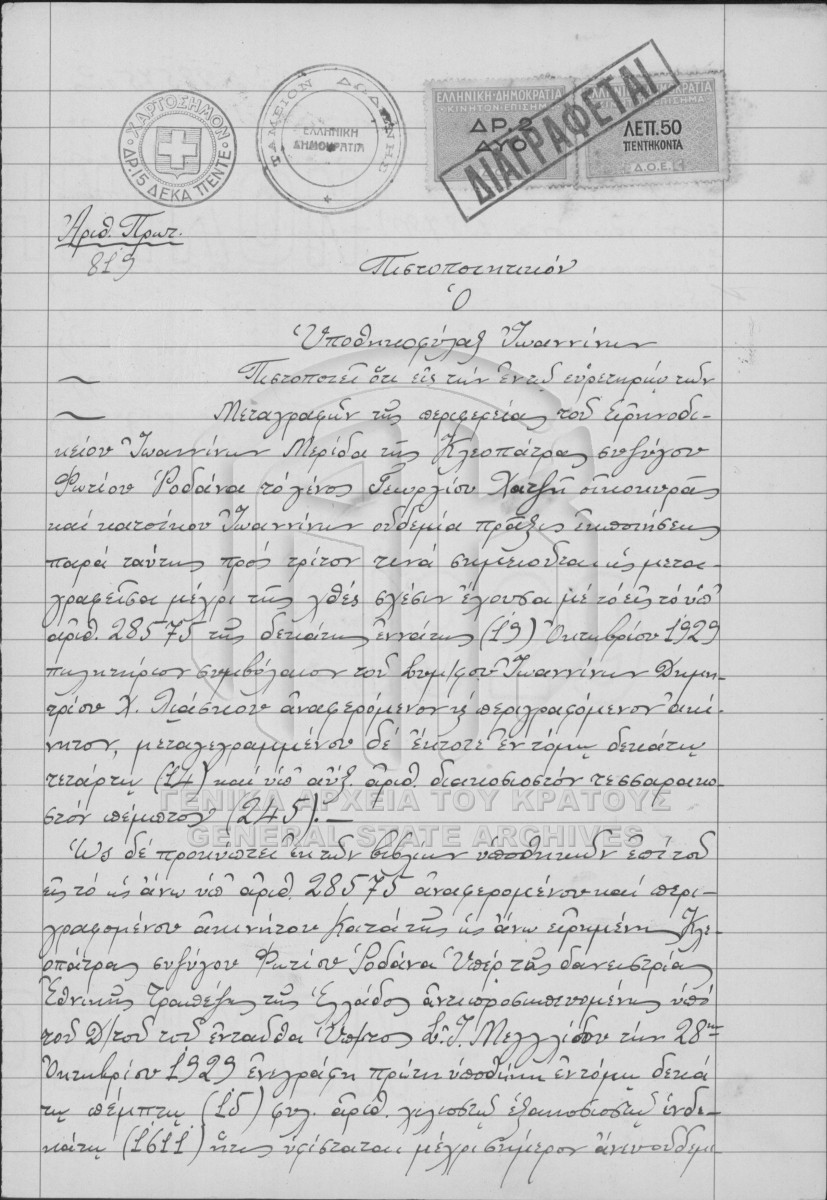 ΧΑΡΤΟΣΗΜΟΝ
ΔΡ. 15 ΔΕΚΑ ΠΕΝΤΕ
ΤΑΜΕΙΟΝ ΔΩΔΩΝΗΣ
ΕΛΛΗΝΙΚΗ
ΔΗΜΟΚΡΑΤΙΑ
ΕΛΛΗΝΙΚΗ·ΔΗΜΟΚΡΑΤΙΑ
ΚΙΝΗΤΟΝ·ΕΠΙΣΗΜΑ
ΔΡ. 2
ΔΥΟ
ΛΕΠ. 50
ΠΕΝΤΗΚΟΝΤΑ
Δ.Ο.Ε.
ΔΙΑΓΡΑΦΕΤΑΙ
Ἀριθ. Πρωτ.
819
Πιστοποιητικόν
Ὁ
Ὑποθηκοφύλαξ Ἰωαννίνων
Πιστοποιεῖ ὅτι εἰς τὴν ἐν τῷ εὑρετηρίῳ τῶν
Μεταγραφῶν τῆς περιφερείας τοῦ Εἰρηνοδι-
κείου Ἰωαννίνων Μερίδα τῆς Κλεοπάτρας συζύγου
Φωτίου Ῥοδάνα τὸ γένος Γεωργίου Χατζῆ οἰκοκυρᾶς
καὶ κατοίκου Ἰωαννίνων οὐδεμία πρᾶξις ἐκποιήσεως
παρὰ ταύτης πρός τρίτον τινά σημειοῦται ὡς μετα-
γραφεῖσα μέχρι τῆς χθές σχέσιν ἔχουσα μὲ τὸ εἰς τὸ ὑπ'
ἀριθ. 28575 τῆς δεκάτης ἐννάτης (19) Ὀκτωβρίου 1929
πωλητήριον συμβόλαιον τοῦ Συμ/φου Ἰωαννίνων Δημη-
τρίου Χ. ἀναφερόμενον κ περιγραφόμενον ἀκί-
νητον, μεταγεγραμμένου δέ ἔκτοτε ἐν τόμῳ δεκάτῳ
τετάρτῳ (14) καὶ ὑπ' αὔξ. ἀριθ. διακοσιοστόν τεσσαρακο-
στόν πέμπτον (245).—
ΓΕΝΙΚΑ ΑΡΧΕΙΑ ΤΟΥ ΚΡΑΤΟΥΣ
GENERAL STATE ARCHIVES
Ὡς δέ προκύπτει ἐκ τῶν βιβλίων ὑποθηκῶν ἐπί τοῦ
εἰς τό ὡς ἄνω ὑπ' ἀριθ. 28575 ἀναφερομένου καί περι-
γραφομένου ἀκινήτου κατά τῆς ὡς ἄνω εἰρημένης Κλε-
οπάτρας συζύγου Φωτίου Ῥοδάνα ὑπέρ τῆς δανειστρίας
Ἐθνικῆς Τραπέζης τῆς Ἑλλάδος ἀντιπροσωπευομένης ὑπό
τοῦ Δ/τοῦ τοῦ ἐνταῦθα Ὑπ/τος Ι. τὴν 28ην
Ὀκτωβρίου 1929 ἐνεγράφη πρώτη ὑποθήκη ἐν τόμῳ δεκά-
τῳ πέμπτῳ (15) φυλ. ἀριθ. χιλιοστῷ ἑξακοσιοστῷ ἑνδε-
κάτῳ (1611) ἥτις ὑφίσταται μέχρι σήμερον ἄνευ οὐδεμι-